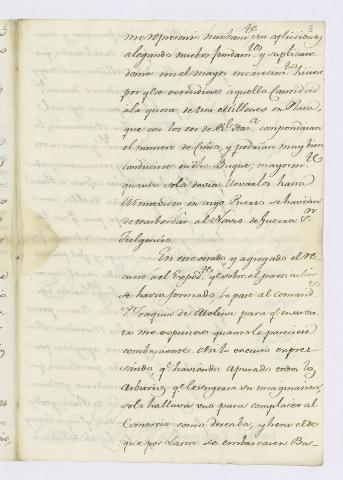 3
me representa nuebam.te sus aplicciones
alegando nuebos fundam.tos y suplican
dome con el mayor encarecim.to hiciese
por q.e se estendiese aquella Cantidad
à la quota de tres Millones en Plata,
que con los de R.l Haz.a compondrian
el numero de cinco, y podrian muy bien
conducirse en dho Buque; mayorm.te
quando solo devia llevarlos hasta
Montevideo en cuyo Puerto se havian
de trasbordar al Navio de Guerra S.n
Fulgencio.
En este estado, y agregado el re
curso à el Exped.te q.e sobre el particular
se havia formado lo pasè al Comand.te
D.n Joaquin de Molina para q.e en su vis
ta me expusiese quanto le pareciese
combeniente. Asi lo executò expre-
sando, q.e haviendo apurado todos los
Arbitrios, q.e le sugeria su imaginacion
solo hallava uno para complacer al
Comercio como deseaba, y hera el de
que por Lastre se embarcasen Bar-